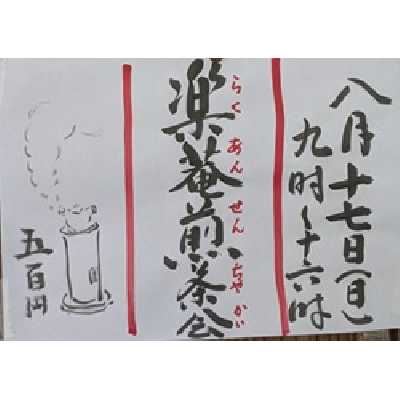 八月十七日(日)
九时~十六时
楽菴煎茶会
らくあんせんちゃかい
五百円